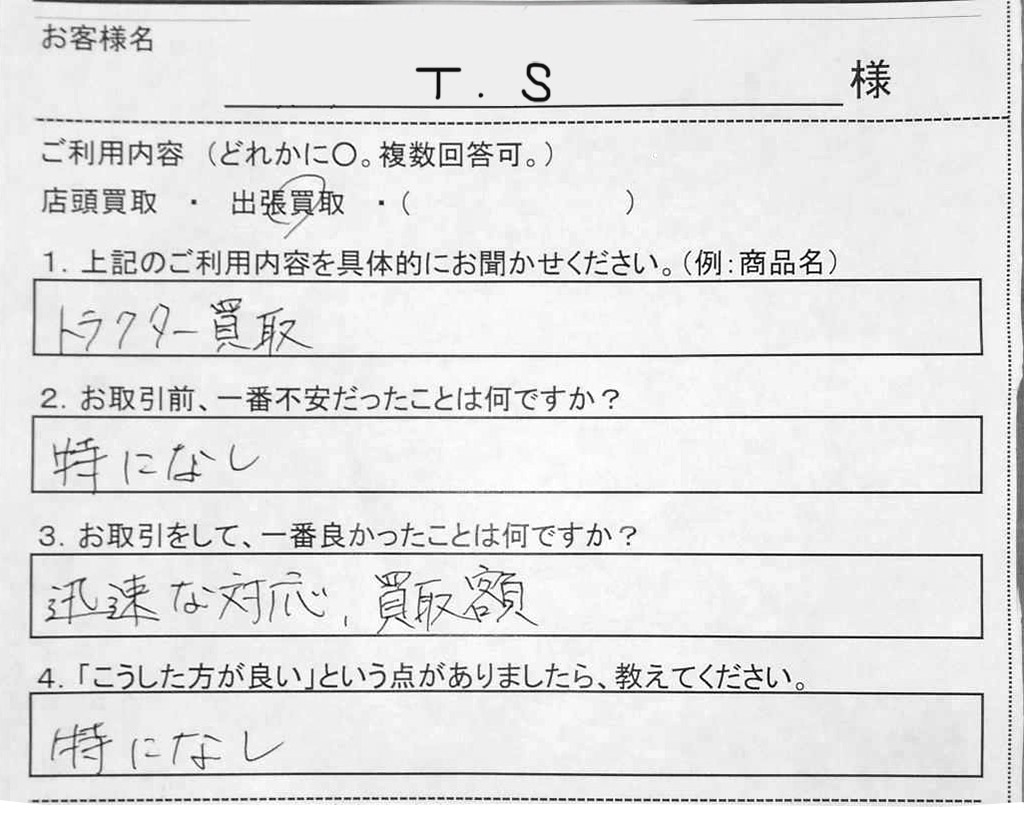 お客様名
T.S 様
ご利用内容 (どれかに○。複数回答可。)
店頭買取 ・ 出張買取 ・( )
1. 上記のご利用内容を具体的にお聞かせください。(例:商品名)
トラクター買取
2. お取引前、一番不安だったことは何ですか?
特になし
3. お取引をして、一番良かったことは何ですか?
迅速な対応、買取額
4. 「こうした方が良い」という点がありましたら、教えてください。
特になし